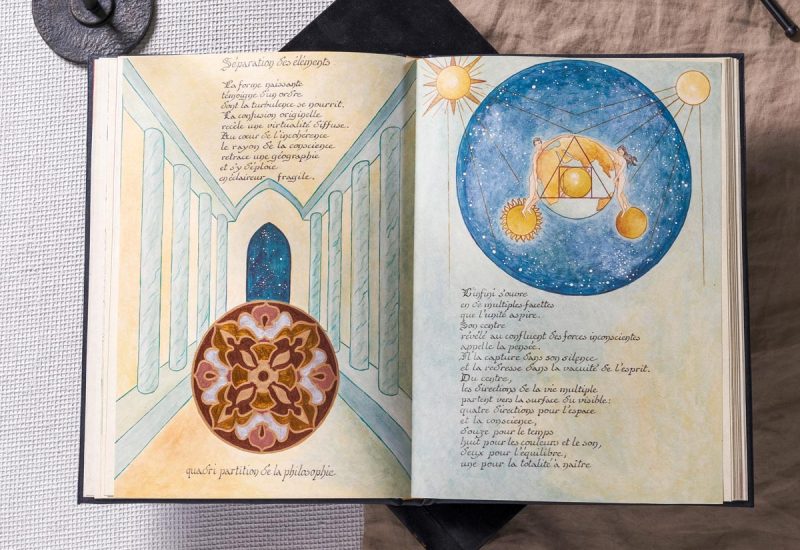 Séparation des éléments
La forme naissante
témoigne d'un ordre
dont la turbulence se nourrit.
La confusion originelle
recèle une virtualité diffuse.
Au cœur de l'incohérence
le rayon de la conscience
retrace une géographie
et s'y déploie
en éclaireur fragile.
quadri partition de la philosophie
L'infini s'ouvre
en de multiples facettes
que l'unité aspire.
Son centre
révélé au confluent des forces inconscientes
appelle la pensée.
Il la capture dans son silence
et la redresse dans la vacuité de l'esprit.
Du centre,
les directions de la vie multiple
partent vers la surface du visible:
quatre directions pour l'espace
et la conscience,
douze pour le temps
huit pour les couleurs et le son,
deux pour l'équilibre,
une pour la totalité à naître